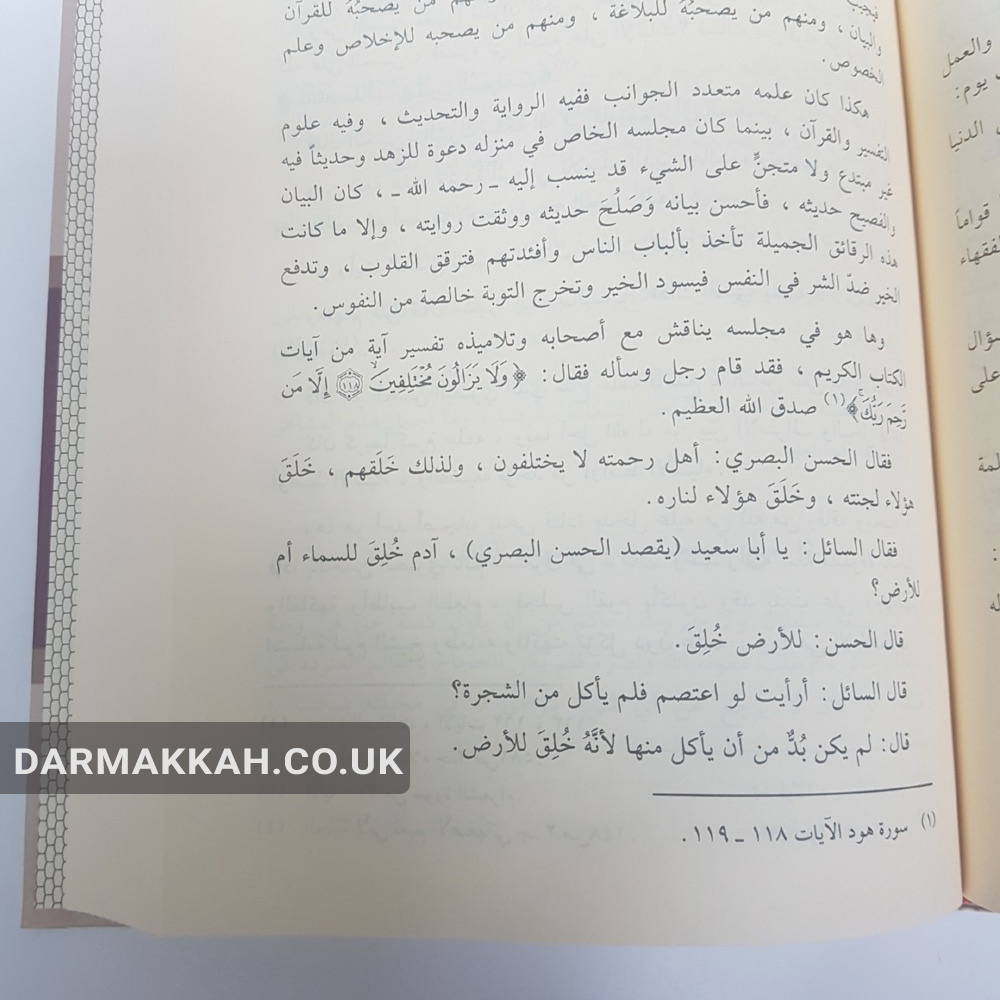 فيجيب
والبيان ، ومنهم من يصحبُهُ للبلاغة ، ومنهم من يصحبُهُ للقرآن
ومنهم من يصحبه للإخلاص وعلم
الخصوص .
هكذا كان علمه متعدد الجوانب ففيه الرواية والتحديث ، وفيه علوم
التفسير والقرآن ، بينما كان مجلسه الخاص في منزله دعوة للزهد وحديثاً فيه
غير مبتدع ولا متجنٍّ على الشيء قد ينسب إليه ـ رحمه الله ـ ، كان البيان
والفصيح حديثه ، فأحسن بيانه وَصَلُحَ حديثه ووثقت روايته ، وإلا ما كانت
هذه الرقائق الجميلة تأخذ بألباب الناس وأفئدتهم فترقق القلوب ، وتدفع
الخير ضدّ الشر في النفس فيسود الخير وتخرج التوبة خالصة من النفوس .
وها هو في مجلسه يناقش مع أصحابه وتلاميذه تفسير آية من آيات
الكتاب الكريم ، فقد قام رجل وسأله فقال : ﴿ وَلَا يَزَالُونَ مُخْتَلِفِينَ ١١٨ إِلَّا مَن
رَّحِمَ رَبُّكَ ﴾(١) صدق الله العظيم .
فقال الحسن البصري : أهل رحمته لا يختلفون ، ولذلك خَلَقهم ، خَلَقَ
هؤلاء لجنته ، وخَلَقَ هؤلاء لناره .
فقال السائل : يا أبا سعيد (يقصد الحسن البصري) ، آدم خُلِقَ للسماء أم
للأرض؟
قال الحسن : للأرض خُلِقَ .
قال السائل : أرأيت لو اعتصم فلم يأكل من الشجرة؟
قال : لم يكن بُدٌّ من أن يأكل منها لأنَّهُ خُلِقَ للأرض .
(١) سورة هود الآيات ١١٨ ـ ١١٩ .
والعمل
يوم :
الدنيا
قواماً
الفقهاء
سؤال
على
DARMAKKAH.CO.UK